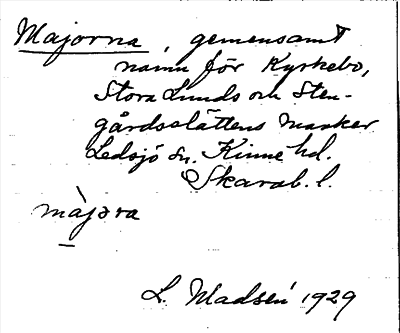 Majorna, gemensamt
namn för Kyrkebo,
Stora Lunds och Sten-
gårdsslättens marker
Ledsjö sn. Kinne hd.
Skarab. l.
màjɔra
L. Madsén 1929